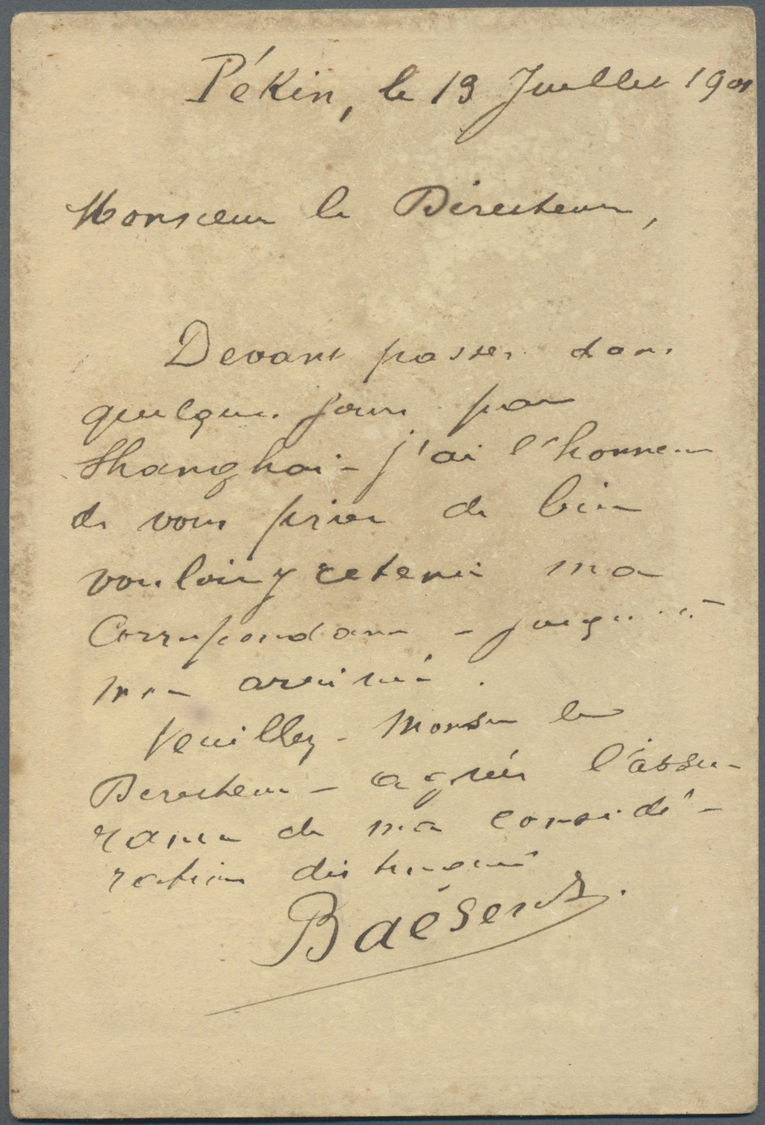 Pékin, le 13 Juillet 1901
Monsieur le Directeur,
Devant passer dans
quelques jours par
Shanghai - j'ai l'honneur
de vous prier de bien
vouloir y retenir ma
Correspondance - jusqu'à
mon arrivée.
Veuillez - Monsieur le
Directeur - agréer l'assu-
rance de ma considé-
ration distinguée